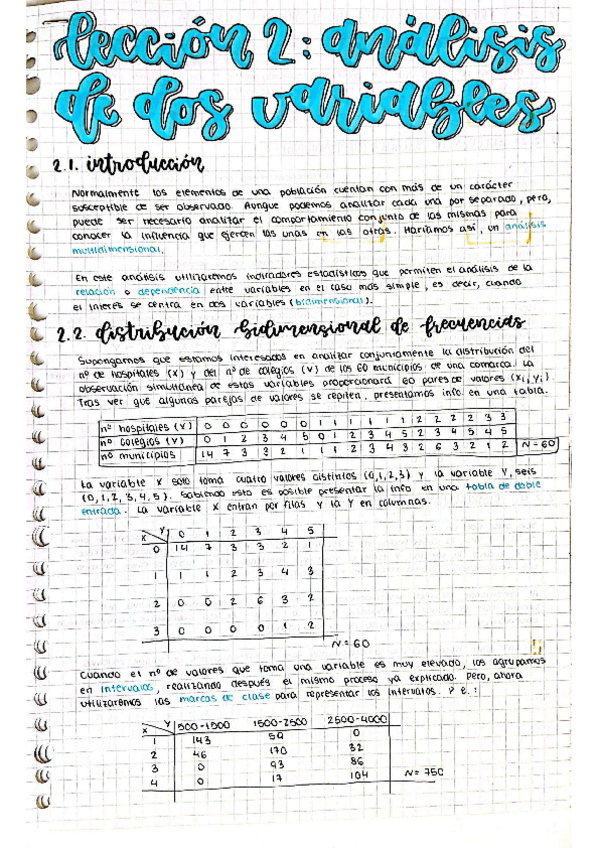 lección 2: análisis
de dos variables
2.1. introducción
Normalmente los elementos de una población cuentan con más de un carácter
susceptible de ser observado. Aunque podemos analizar cada una por separado, pero,
puede ser necesario analizar el comportamiento conjunto de las mismas para
conocer la influencia que ejercen las unas en las otras. Haríamos así, un análisis
multidimensional.
En este análisis utilizaremos indicadores estadísticos que permiten el análisis de la
relación o dependencia entre variables en el caso más simple, es decir, cuando
el interés se centra en dos variables (bidimensional).
2.2. distribución bidimensional de frecuencias
Supongamos que estamos interesados en analizar conjuntamente la distribución del
nº de hospitales (X) y del nº de colegios (Y) de los 60 municipios de una comarca. La
observación simultánea de estas variables proporcionará 60 pares de valores (xi, yi)
Tras ver que algunas parejas de valores se repiten, presentamos info en una tabla.
nº hospitales (Y) 0 0 0 0 0 0 1 1 1 1 1 1 2 2 2 2 3 3
nº colegios (Y) 0 1 2 3 4 5 0 1 2 3 4 5 2 3 4 5 4 5
nº municipios 14 7 3 3 2 1 1 1 2 3 4 3 2 6 3 2 1 2 N=60
La variable X solo toma cuatro valores distintos (0,1,2,3) y la variable Y, seis
(0,1,2,3,4,5). Sabiendo esto es posible presentar la info en una tabla de doble
entrada. La variable X entran por filas y la Y en columnas.
X Y 0 1 2 3 4 5
0 14 7 3 3 2 1
1 1 1 2 3 4 3
2 0 0 2 6 3 2
3 0 0 0 0 1 2
N=60
Cuando el nº de valores que toma una variable es muy elevado, los agrupamos
en intervalos, realizando después el mismo proceso ya explicado. Pero, ahora
utilizaremos las marcas de clase para representar los intervalos. P e.:
X Y 500-1500 1500-2500 2500-4000
1 143 59 0
2 46 170 32
3 0 93 86
4 0 17 104 N=750